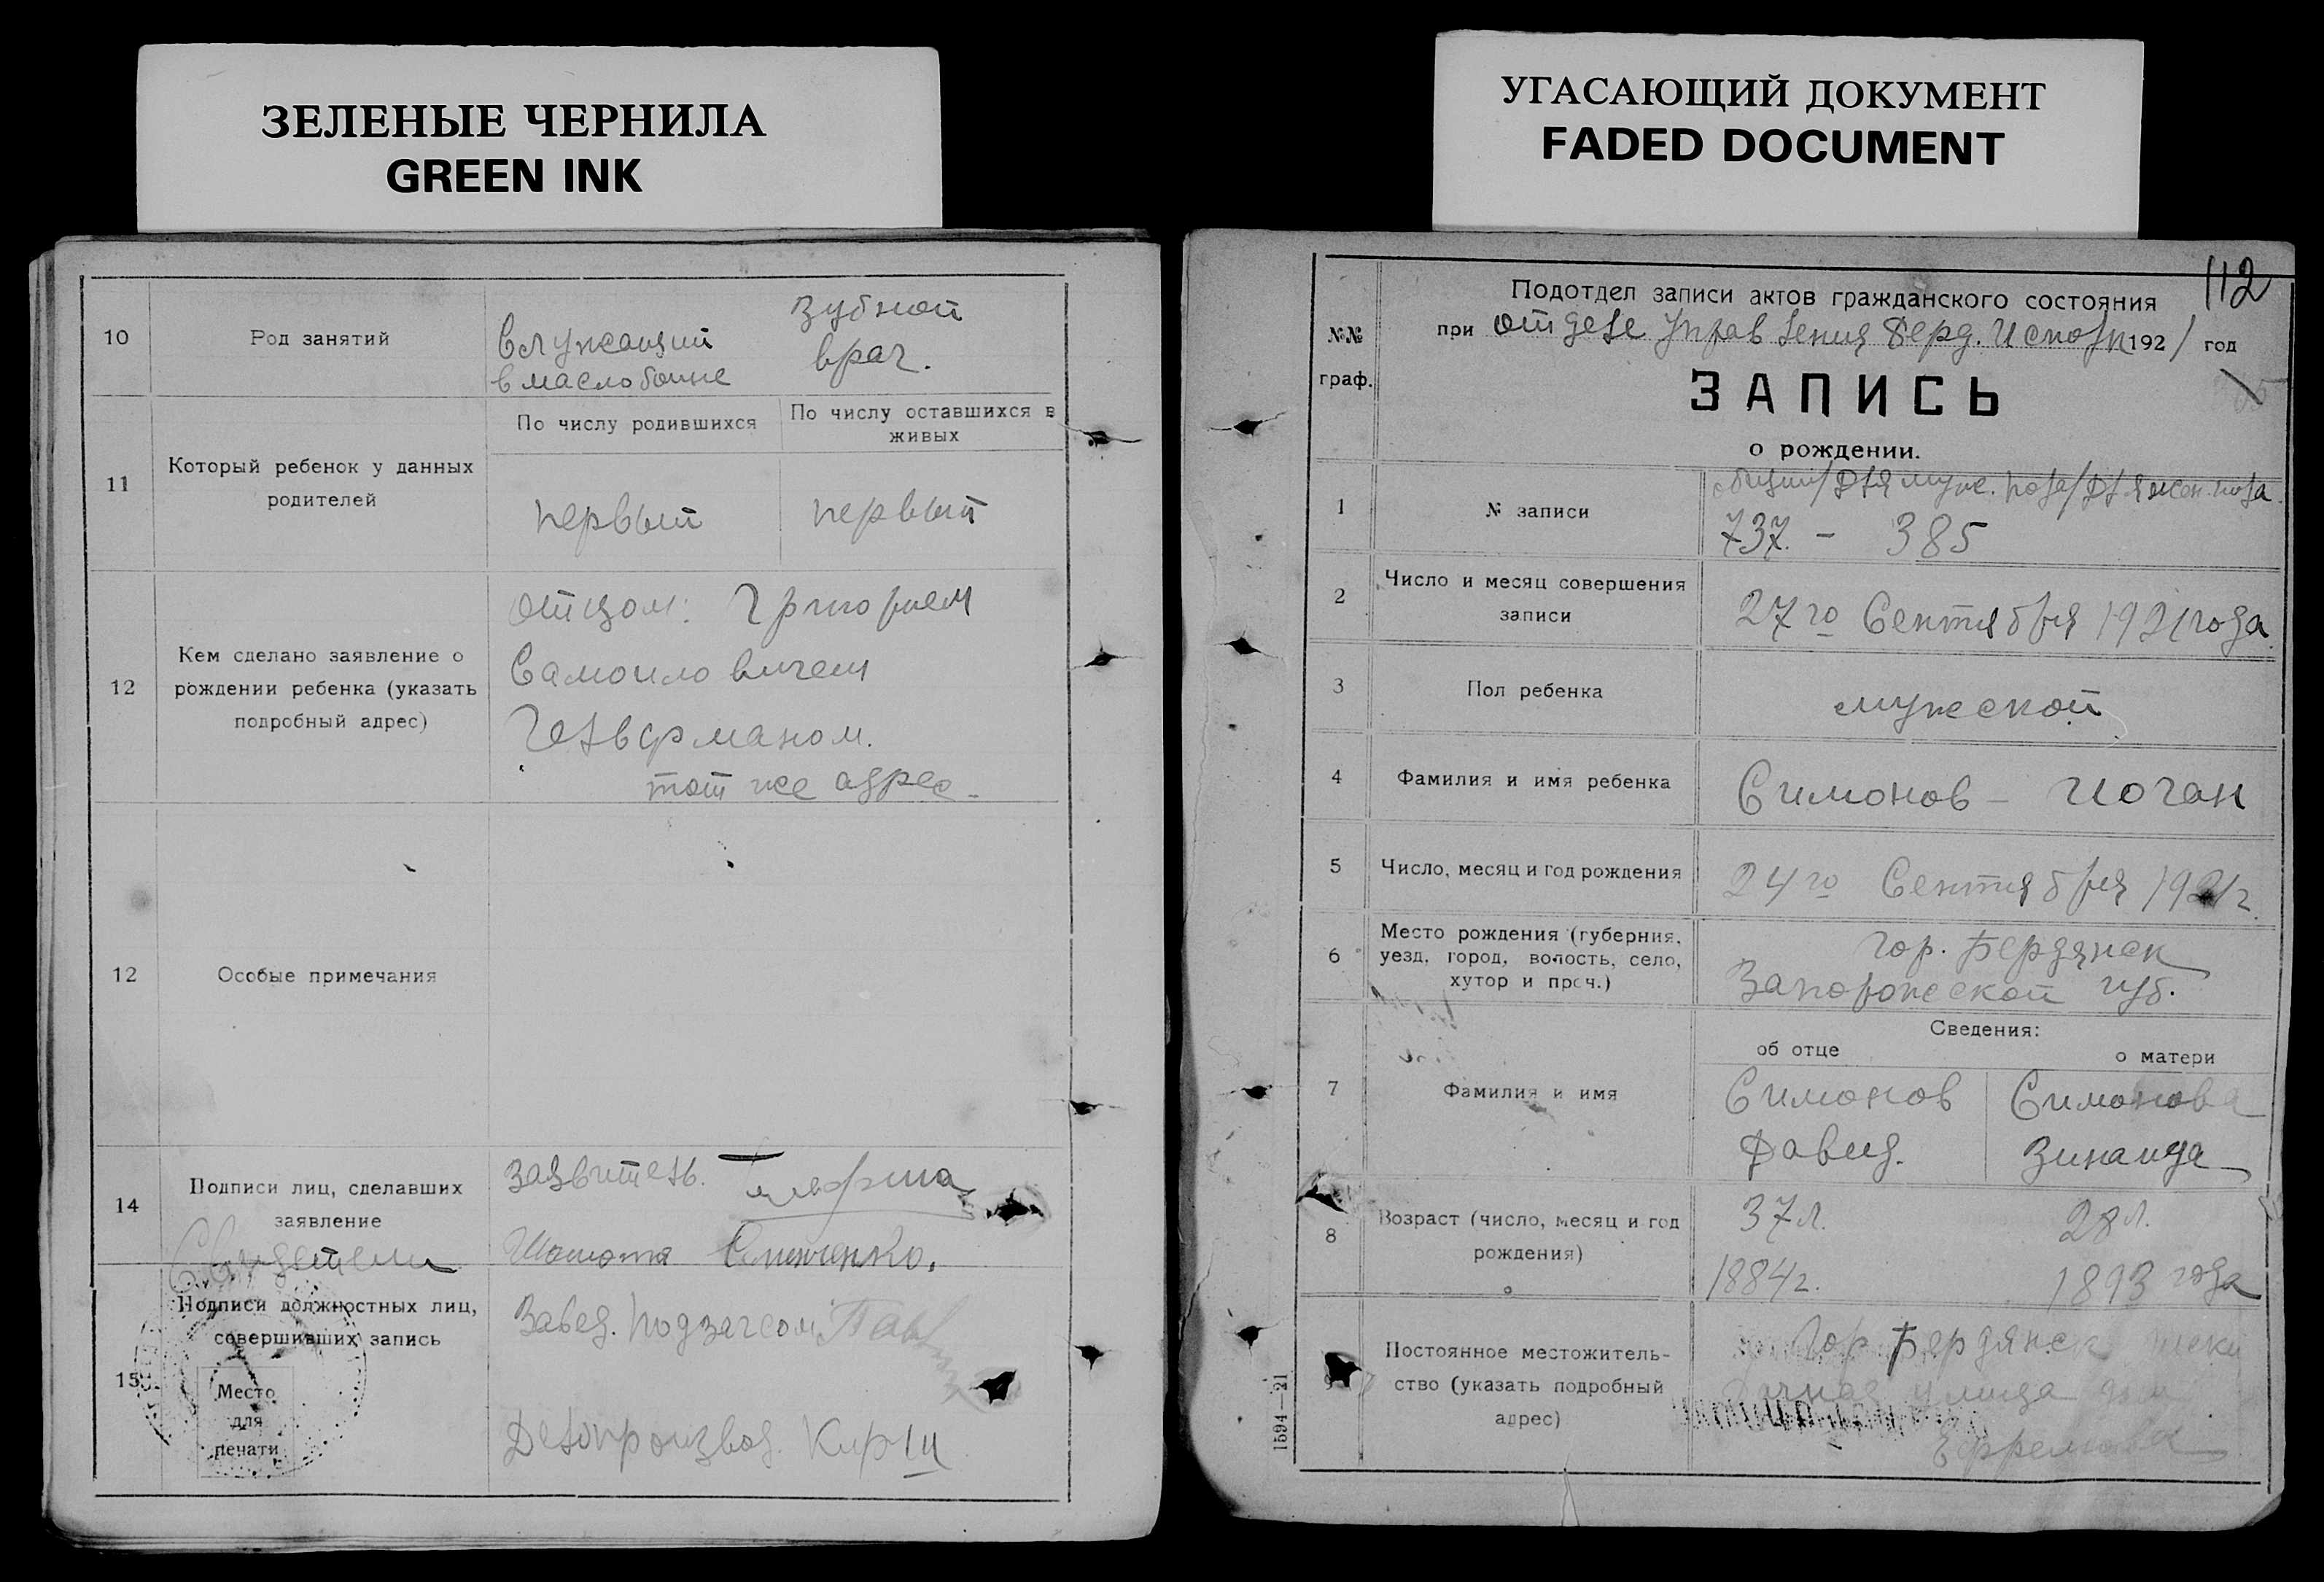 ЗЕЛЕНЫЕ ЧЕРНИЛА
GREEN INK
10
Род занятий
Служащий
в маслобойне
Зубной
врач.
11
Который ребенок у данных
родителей
По числу родившихся
По числу оставшихся в
живых
первый
первый
12
Кем сделано заявление о
рождении ребенка (указать
подробный адрес)
отцом: Григорием
Самойловичем
тот же адрес
12
Особые примечания
14
Подписи лиц, сделавших
заявление
Свидетели
Заявитель.
15
Подписи должностных лиц,
совершивших запись
Место
для
печати
Завед. подзагсом
Делопроизвод.
УГАСАЮЩИЙ ДОКУМЕНТ
FADED DOCUMENT
112
№№
граф.
Подотдел записи актов гражданского состояния
при отделе Управления Берд. Исполк 1921 год
ЗАПИСЬ
о рождении.
1
№ записи
общий/для муж. пола/для жен. пола.
737. - 385
2
Число и месяц совершения
записи
27го Сентября 1921 года
3
Пол ребенка
мужской
4
Фамилия и имя ребенка
Симонов - Иоган
5
Число, месяц и год рождения
24го Сентября 1921г.
6
Место рождения (губерния,
уезд, город, волость, село,
хутор и проч.)
гор. Бердянск
Запорожской губ.
7
Фамилия и имя
Сведения:
об отце
о матери
Симонов
Давид.
Симонова
Зинаида
8
Возраст (число, месяц и год
рождения)
37л.
1884г.
28л.
1893 года
9
Постоянное местожитель-
ство (указать подробный
адрес)
Гор Бердянск
улица
1594—21